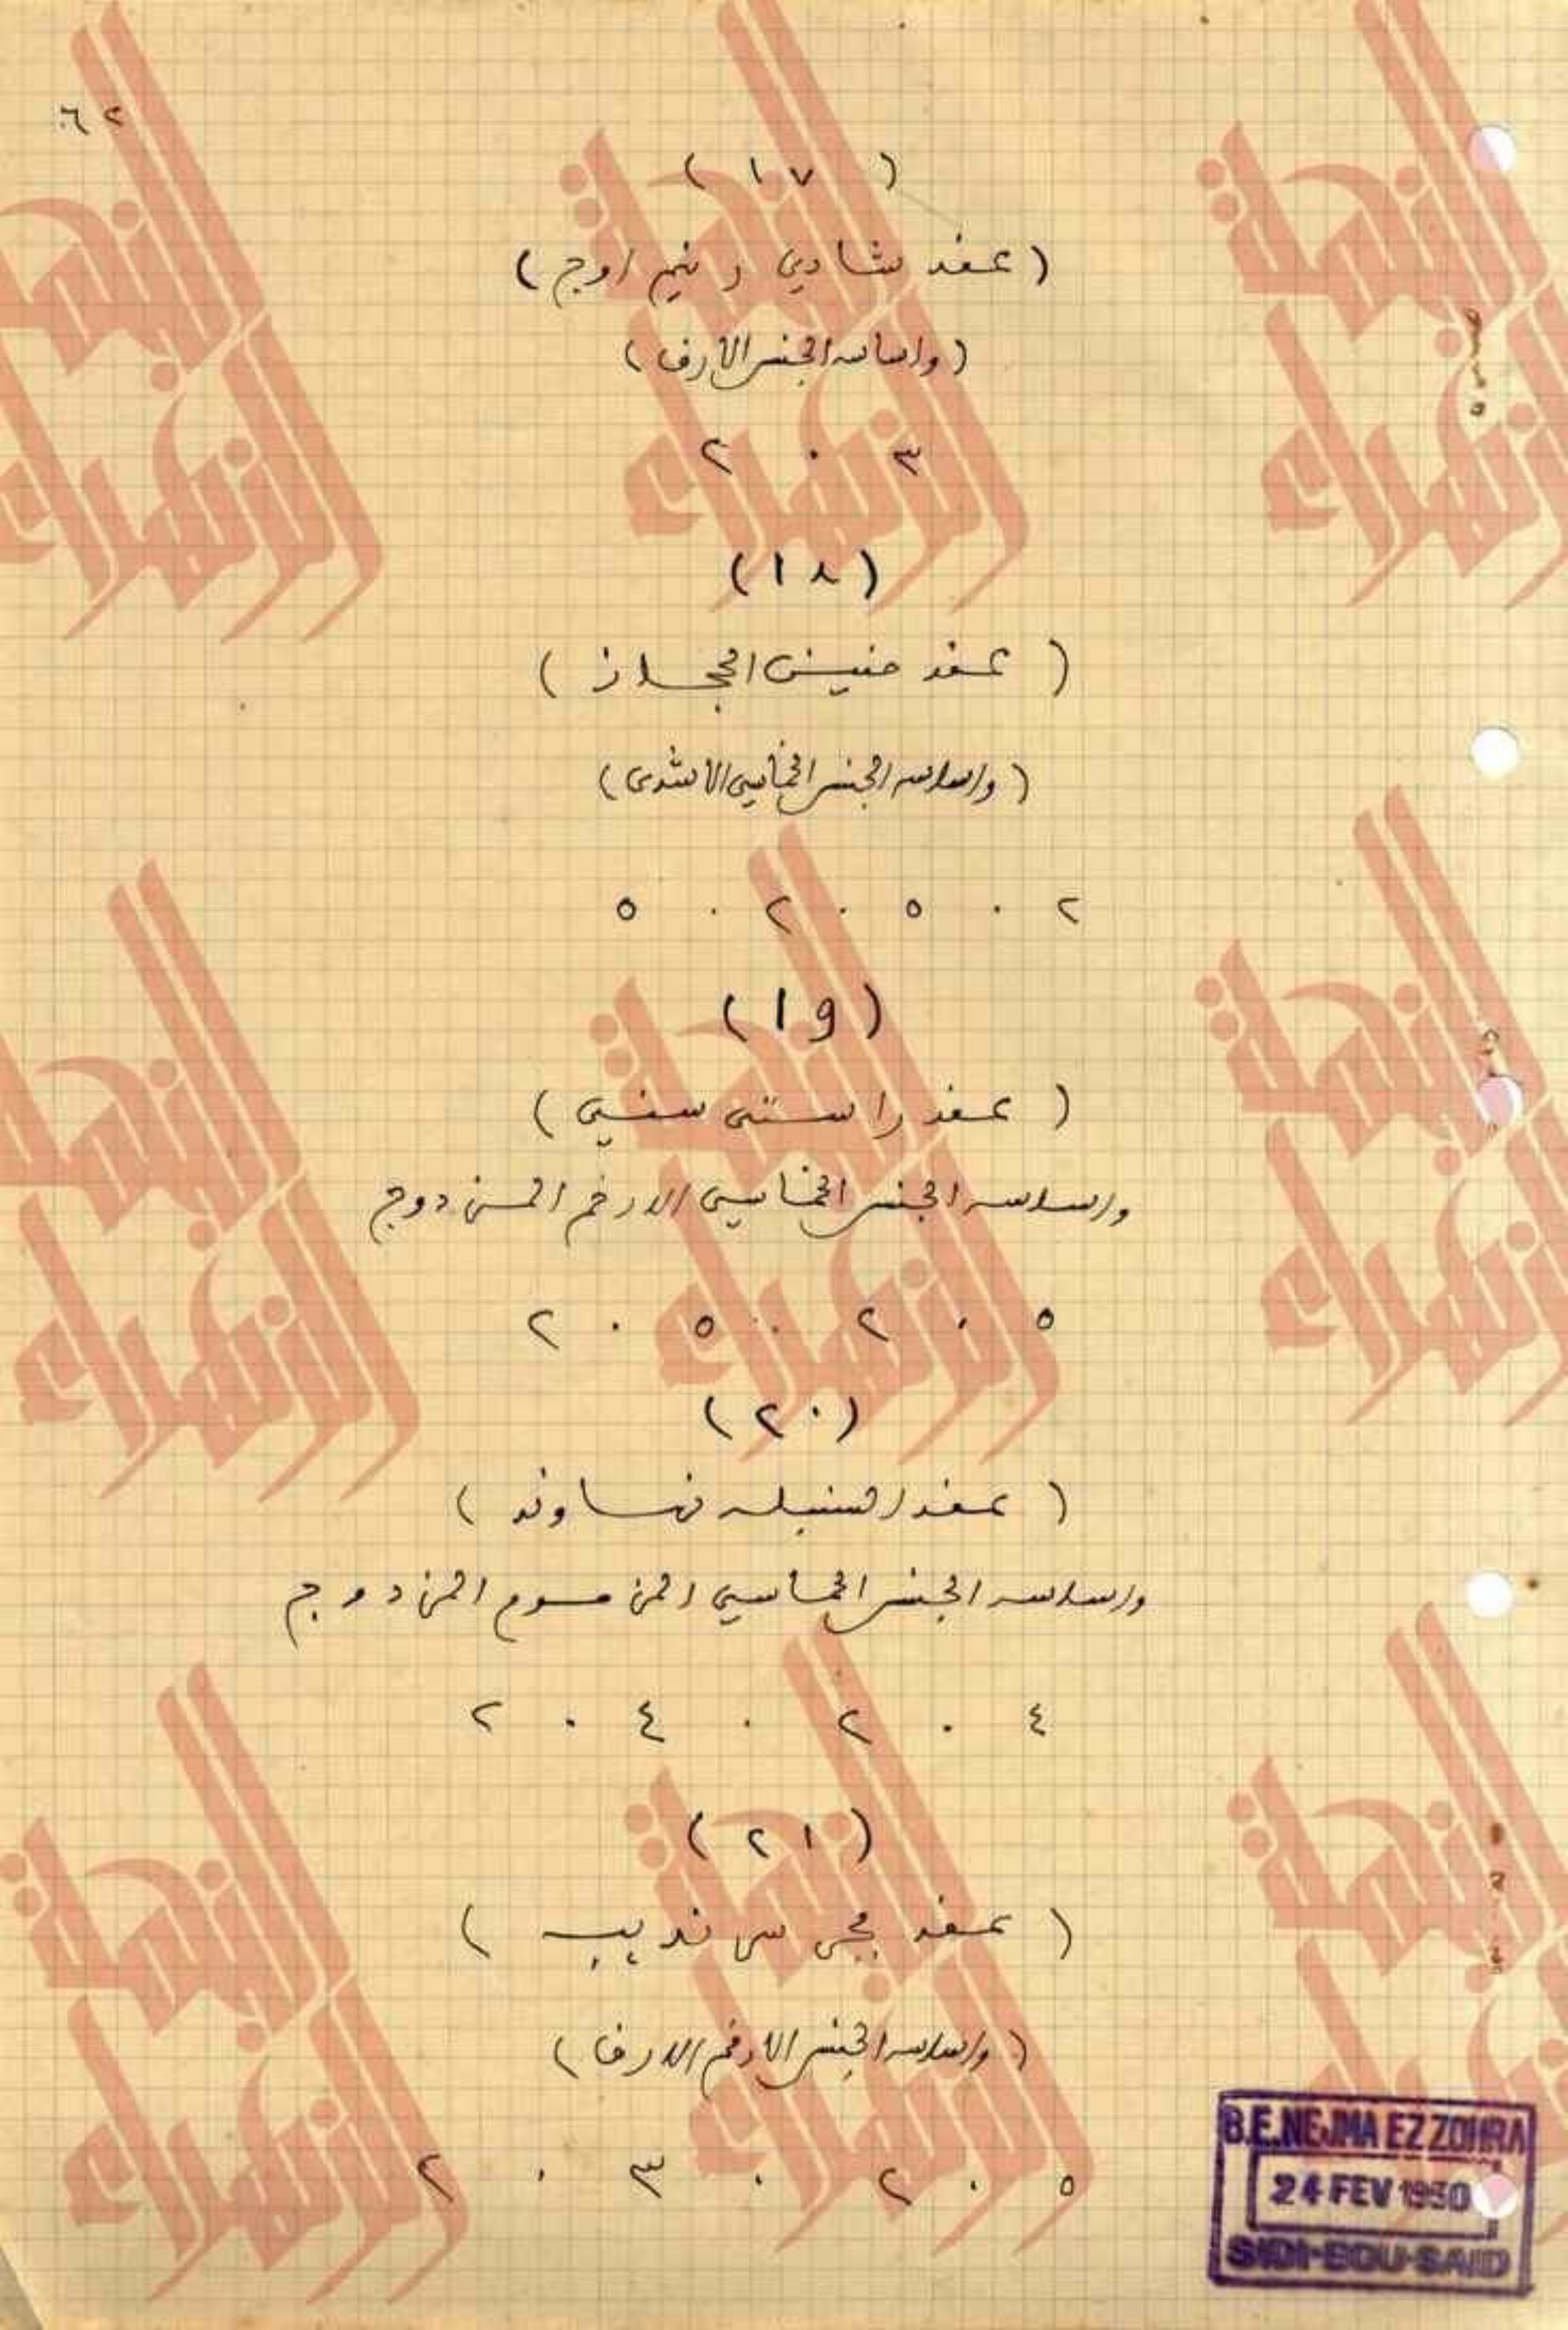 ٦٢
( ١٧ )
( عقد شادي و نيم اوج )
( واساسه الجنس الأرق )
٣ . ٢
( ١٨ )
( عقد الحجاز )
( واساسه الجنس الخماسي الاشدى )
٢ . ٥ . ٢ . ٥
( ١٩ )
( عقد راستى سنى )
واساسه الجنس الخماسي الارخم المزدوج
٥ . ٢ . ٥ . ٢
( ٢٠ )
( عقد السنبله نهاوند )
واساسه الجنس الخماسي المزموم المزدوج
٤ . ٢ . ٤ . ٢
( ٢١ )
( عقد )
( واساسه الجنس الارخم الارق )
٥ . ٢ . ٣ . ٢
B.E.NEJMA EZZOHRA
24 FEV 1930
SIDI-BOU-SAID
النجمة الزهراء